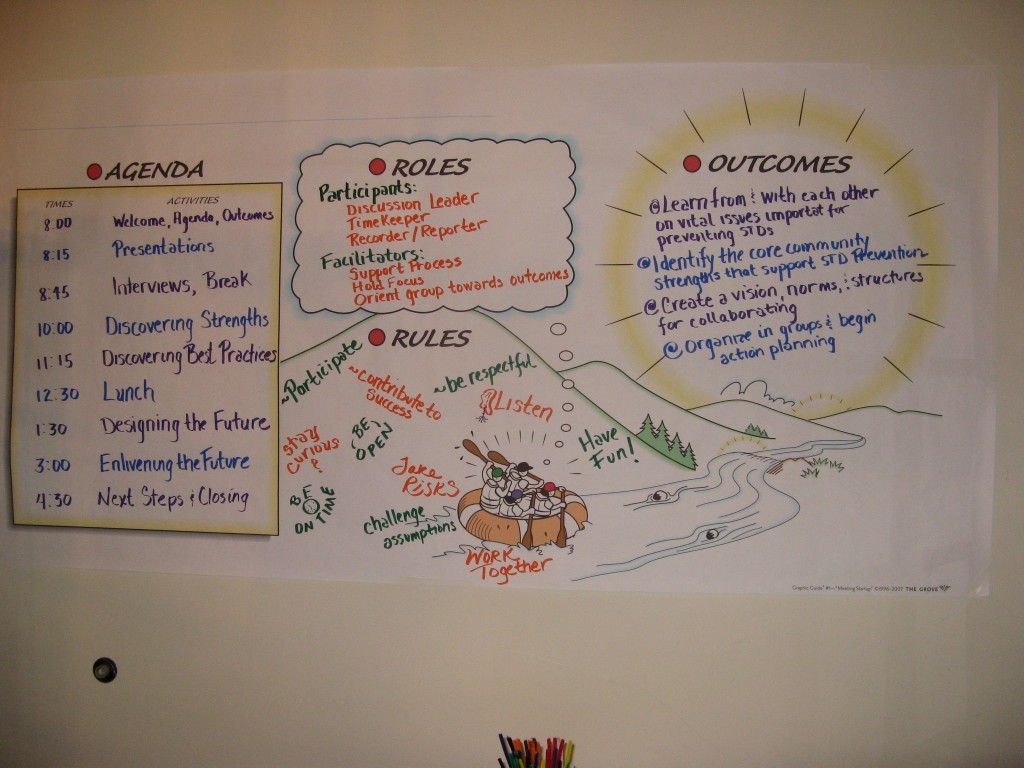 AGENDA
TIMES ACTIVITIES
8:00 Welcome, Agenda, Outcomes
8:15 Presentations
8:45 Interviews, Break
10:00 Discovering Strengths
11:15 Discovering Best Practices
12:30 Lunch
1:30 Designing the Future
3:00 Enlivening the Future
4:30 Next Steps & Closing
ROLES
Participants:
Discussion Leader
TimeKeeper
Recorder/Reporter
Facilitators:
Support Process
Hold Focus
Orient group towards outcomes
RULES
~Participate
~contribute to
Success
~be respectful
Listen
Stay
Curious
?
BE
OPEN
Have
Fun!
Take
Risks
BE
ON TIME
challenge
assumptions
Work
Together
2 3
OUTCOMES
@Learn from & with each other
on vital issues importat for
preventing STDs
@Identify the core community
strengths that support STD Prevention
@Create a vision, norms, & structures
for collaborating
@Organize in groups & begin
action planning
Graphic Guide® #1—"Meeting Startup" ©1996-2007 THE GROVE